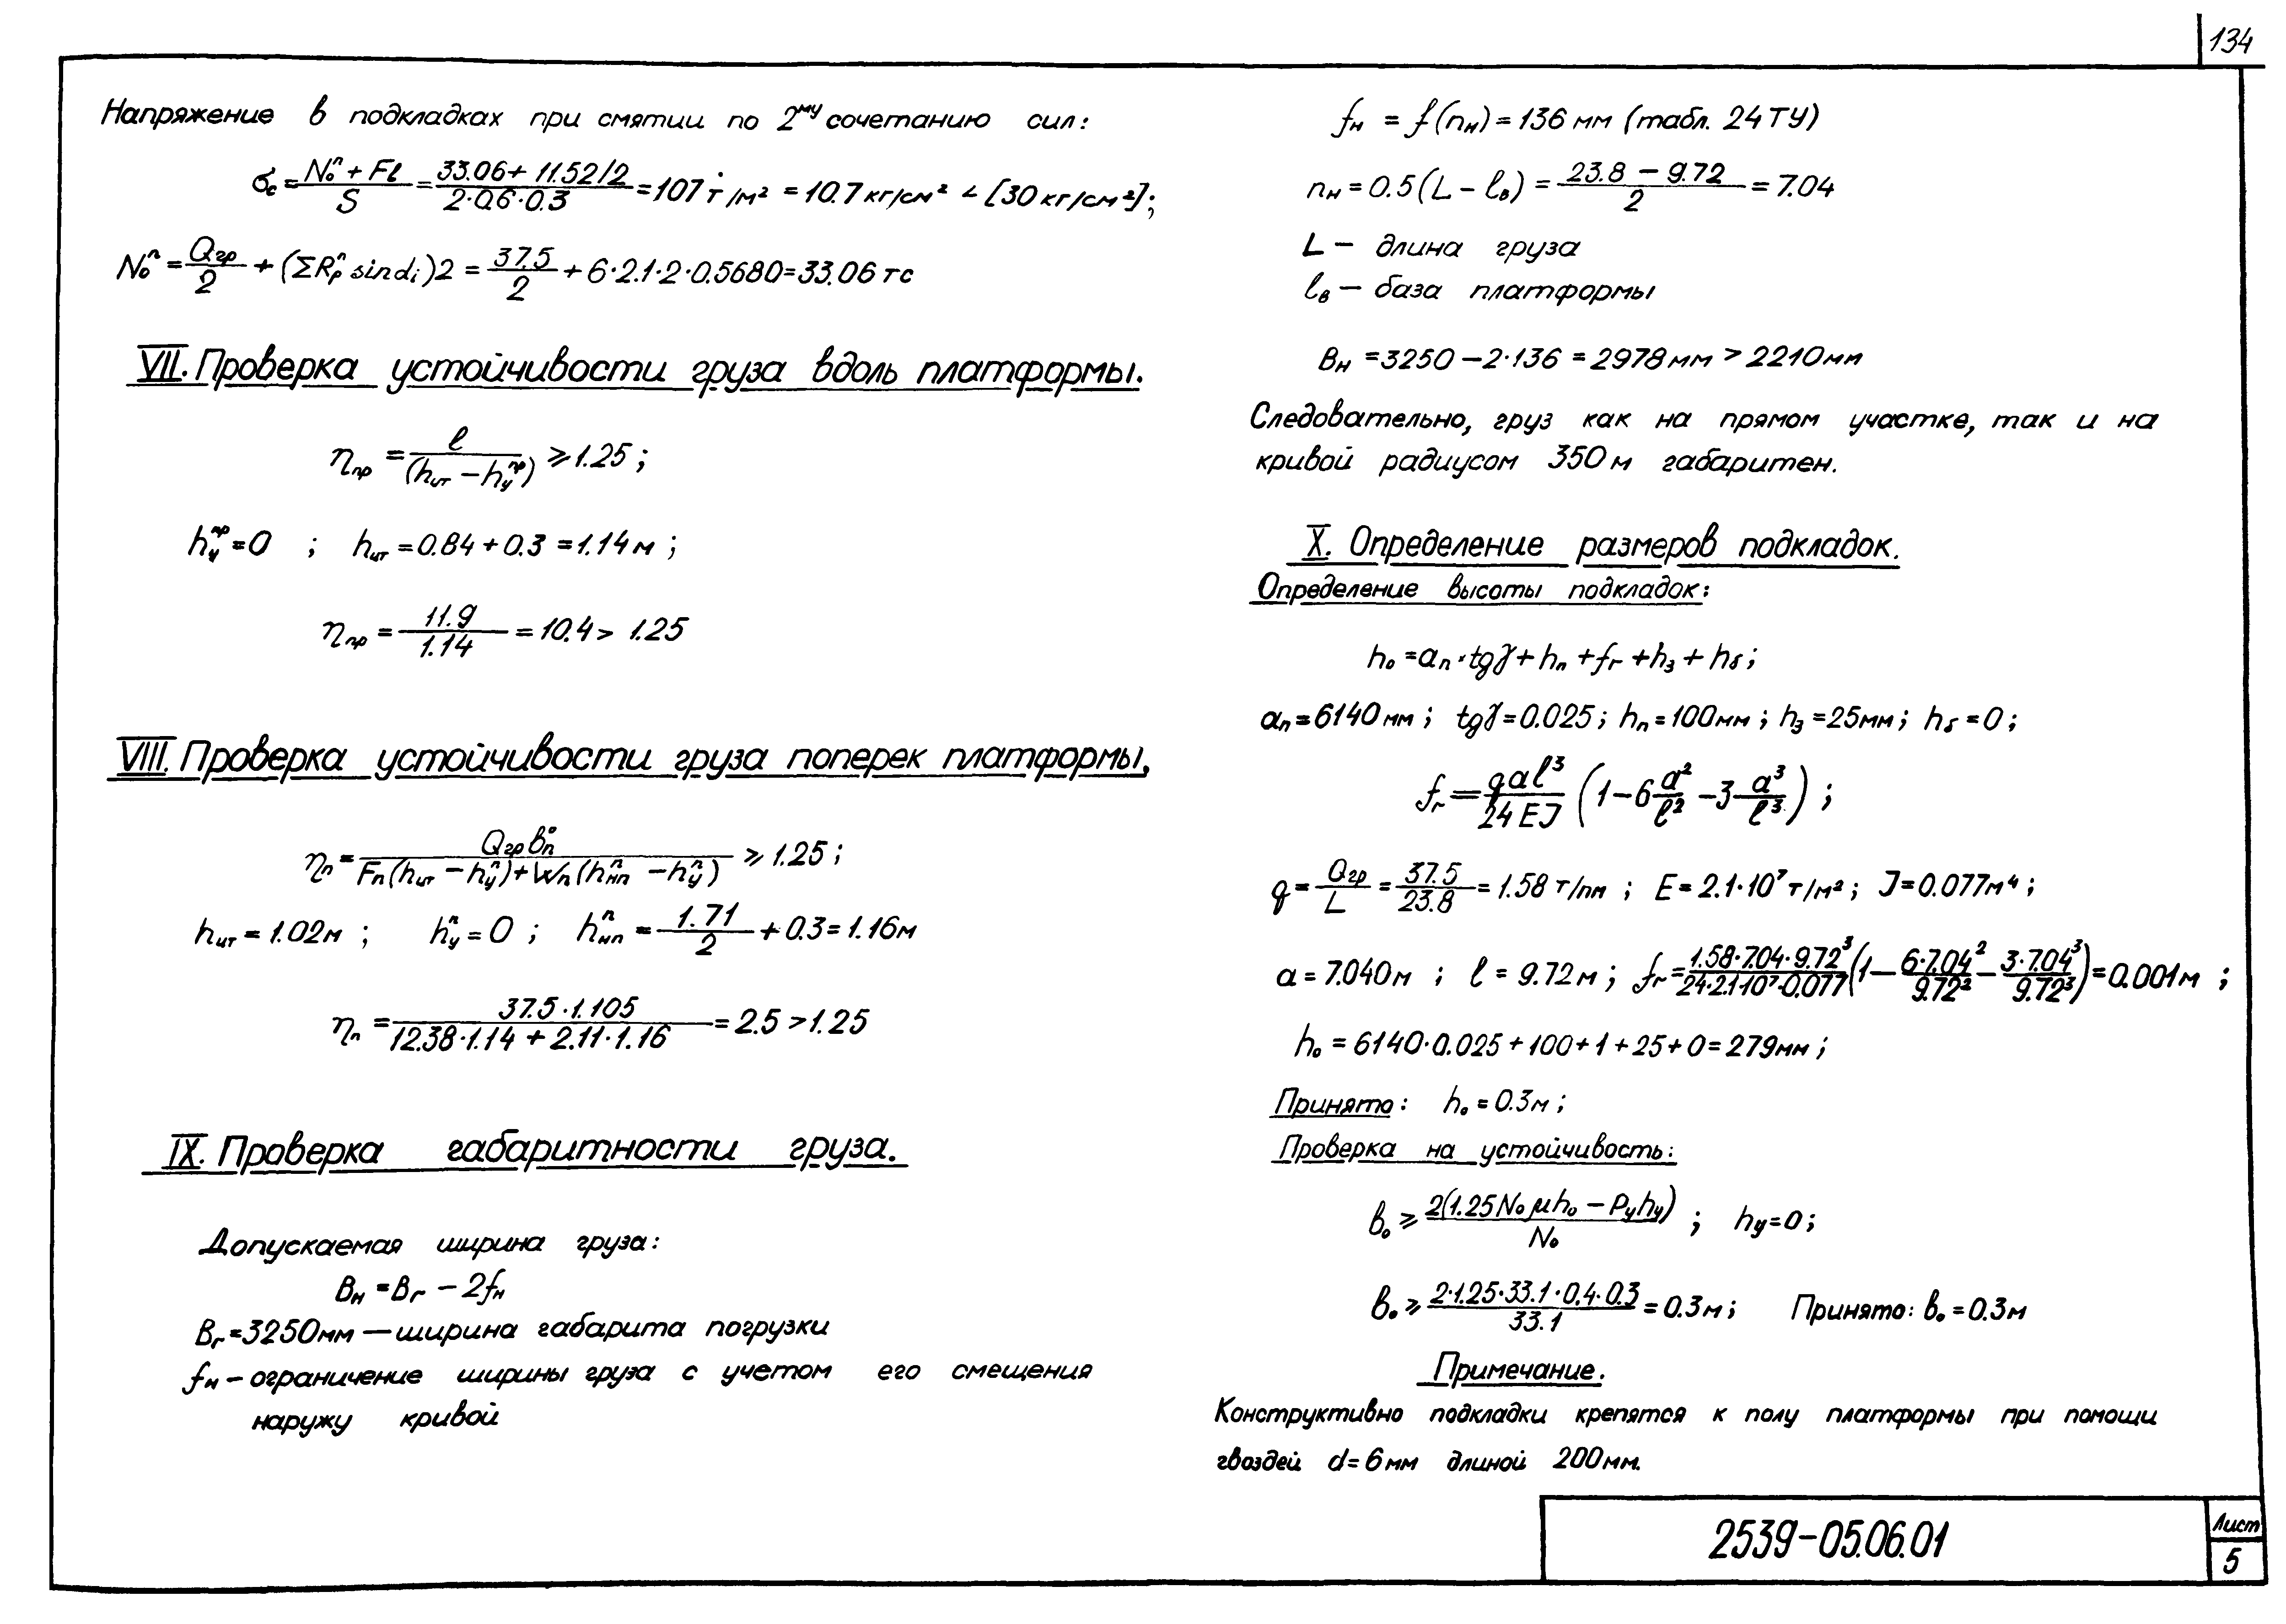 134
Напряжение в подкладках при смятии по 2му сочетанию сил:
σc = (N₀ⁿ + Fl) / S = (33.06 + 11.52/2) / (2·0.6·0.3) = 107 т/м² = 10.7 кг/см² < [30 кг/см²];
N₀ⁿ = Qгр/2 + (ΣRрⁿ sin αi)2 = 37.5/2 + 6·2.1·2·0.5680 = 33.06 тс
VII. Проверка устойчивости груза вдоль платформы.
ηпр = l / (hцт − hупр) ≥ 1.25;
hупр = 0 ; hцт = 0.84 + 0.3 = 1.14 м ;
ηпр = 11.9 / 1.14 = 10.4 > 1.25
VIII. Проверка устойчивости груза поперек платформы,
ηп = Qгр вп° / (Fп(hцт − hуⁿ) + Wп(hнпⁿ − hуⁿ)) ≥ 1.25 ;
hцт = 1.02м ; hуⁿ = 0 ; hнпⁿ = 1.71/2 + 0.3 = 1.16м
ηп = 37.5·1.105 / (12.38·1.14 + 2.11·1.16) = 2.5 > 1.25
IX. Проверка габаритности груза.
Допускаемая ширина груза:
Вн = Вг − 2fн
Вг = 3250мм — ширина габарита погрузки
fн − ограничение ширины груза с учетом его смещения
наружу кривой
fн = f(nн) = 136 мм (табл. 24 ТУ)
nн = 0.5(L − lв) = (23.8 − 9.72) / 2 = 7.04
L — длина груза
lв — база платформы
Вн = 3250 − 2·136 = 2978мм > 2210мм
Следовательно, груз как на прямом участке, так и на
кривой радиусом 350м габаритен.
X. Определение размеров подкладок.
Определение высоты подкладок:
h₀ = aп·tgγ + hп + fг + hз + hδ;
aп = 6140мм ; tgγ = 0.025 ; hп = 100мм ; hз = 25мм ; hδ = 0 ;
fг = qal³ / 24EJ (1 − 6 a²/l² − 3 a³/l³) ;
q = Qгр/L = 37.5/23.8 = 1.58 т/пм ; E = 2.1·10⁷ т/м² ; J = 0.077м⁴ ;
a = 7.040м ; l = 9.72м ; fг = 1.58·7.04·9.72³ / 24·2.1·10⁷·0.077 (1 − 6·7.04²/9.72² − 3·7.04³/9.72³) = 0.001м ;
h₀ = 6140·0.025 + 100 + 1 + 25 + 0 = 279мм ;
Принято: h₀ = 0.3м ;
Проверка на устойчивость:
в₀ ≥ 2(1.25N₀μh₀ − Pуhу) / N₀ ; hу = 0 ;
в₀ ≥ 2·1.25·33.1·0.4·0.3 / 33.1 = 0.3м ; Принято: в₀ = 0.3м
Примечание.
Конструктивно подкладки крепятся к полу платформы при помощи
гвоздей d = 6мм длиной 200мм.
2539-05.06.01
Лист
5